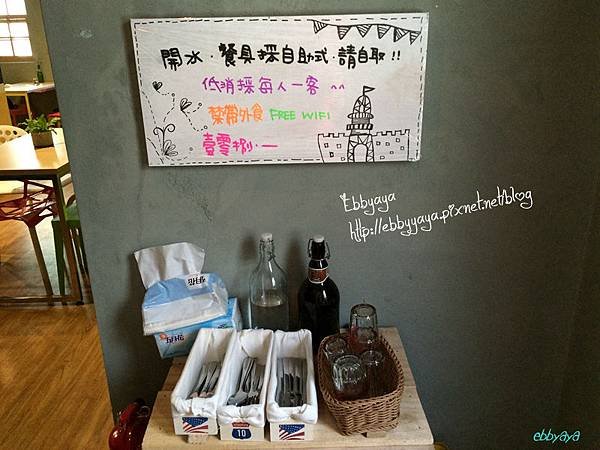 開水．餐具採自助式．請自取!!
低消採每人一客 ^^
禁帶外食 FREE WIFI
壹零捌．一
Ebbyaya
http://ebbyyaya.pixnet.net/blog
10
ebbyaya